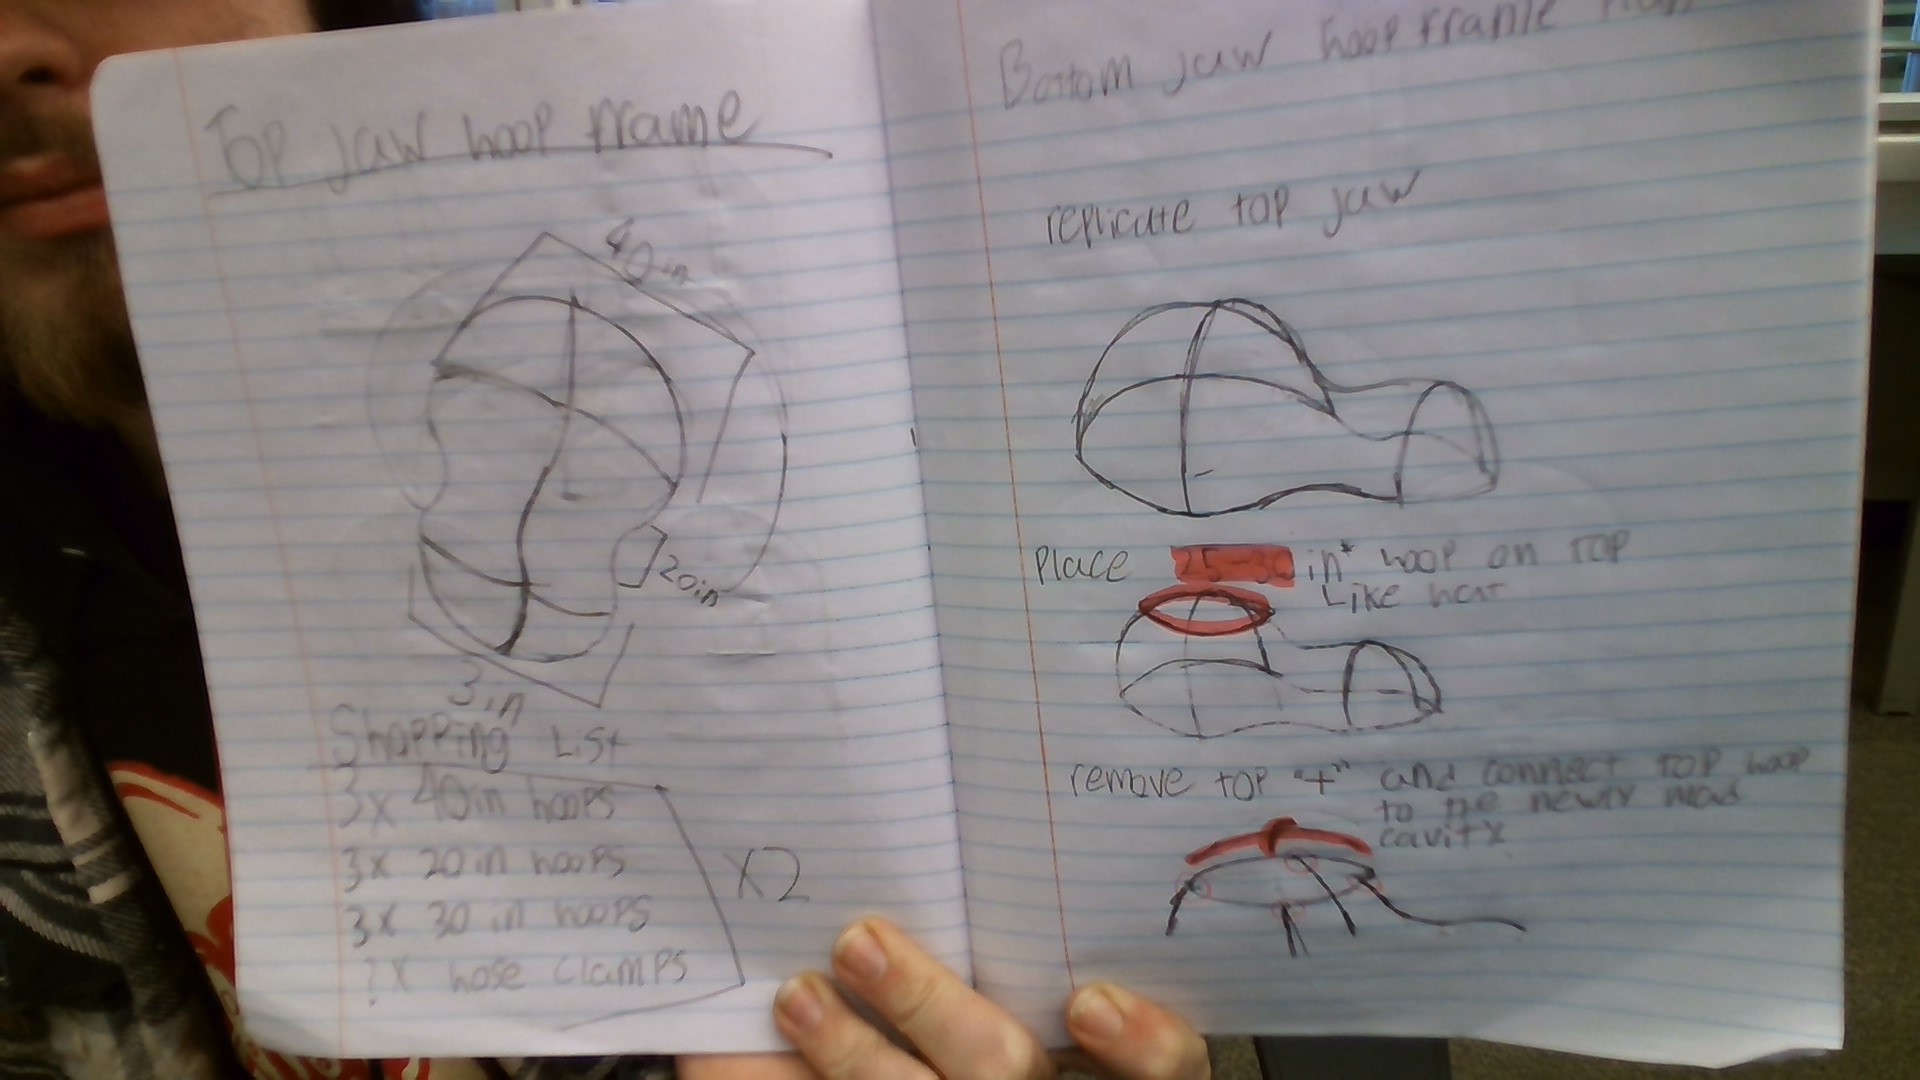 Top jaw hoop frame
40in
20in
3in
Shopping List
3x 40in hoops
3x 20in hoops
3x 30in hoops
?x hose clamps
x2
Bottom jaw hoop frame
replicate top jaw
Place 25-30 in* hoop on top
Like hat
remove top "+" and connect top hoop
to the newly
cavity